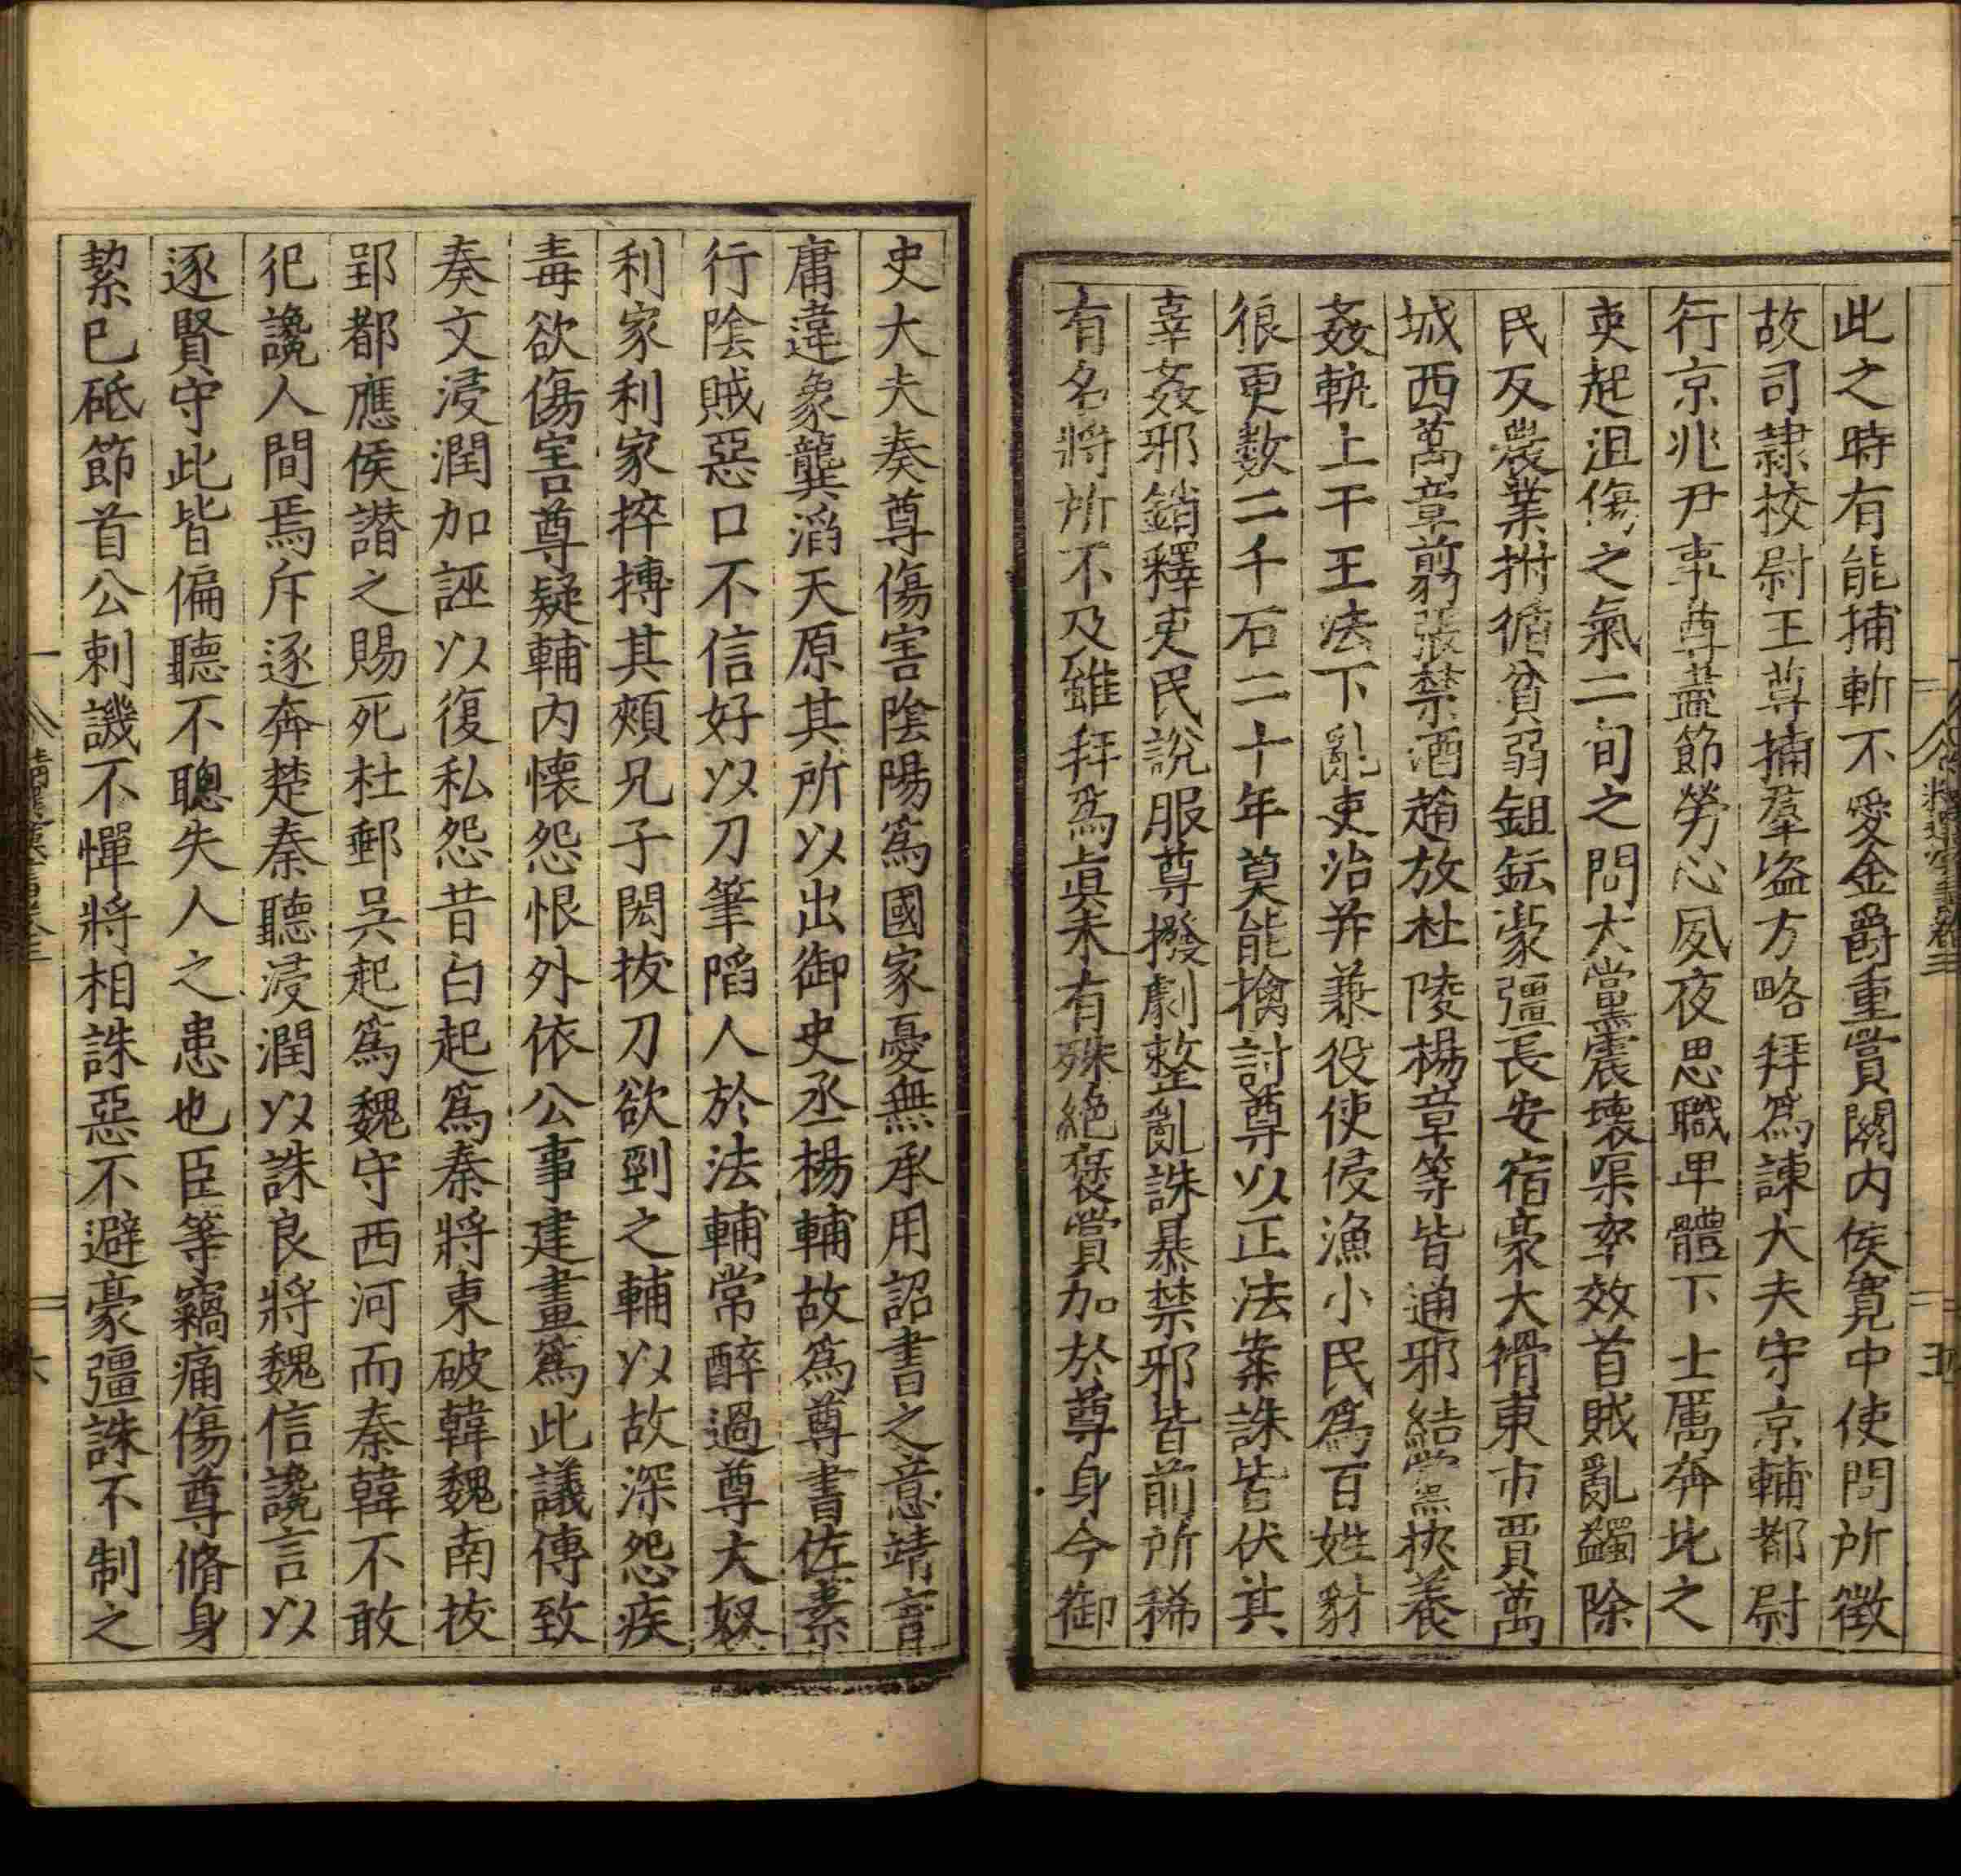 此之時有能捕斬不愛金爵重賞關内侯寛中使問所徵
故司隷校尉王尊捕羣盗方略拜爲諫大夫守京輔都尉
行京兆尹事尊盡節勞心夙夜思職卑體下士厲奔北之
吏起沮傷之氣二旬之間大黨震壞渠率效首賊亂蠲除
民反農業拊循貧弱鉏耘豪彊長安宿豪大猾東市賈萬
城西萬章翦張禁酒趙放杜陵楊章等皆通邪結黨挾養
姦軌上干王法下亂吏治并兼役使侵漁小民爲百姓豺
狼更數二千石二十年莫能擒討尊以正法案誅皆伏其
辜姦邪銷釋吏民説服尊撥劇整亂誅暴禁邪皆前所稀
有名將所不及雖拜爲眞未有殊絶襃賞加於尊身今御
史大夫奏尊傷害陰陽爲國家憂無承用詔書之意靖言
庸違象龔滔天原其所以出御史丞楊輔故爲尊書佐素
行陰賊惡口不信好以刀筆陷人於法輔常醉過尊大奴
利家利家捽搏其頰兄子閎抜刀欲剄之輔以故深怨疾
毒欲傷害尊疑輔内懐怨恨外依公事建畫爲此議傅致
奏文浸潤加誣以復私怨昔白起爲秦將東破韓魏南抜
郢都應侯譛之賜死杜郵呉起爲魏守西河而秦韓不敢
犯讒人間焉斥逐奔楚秦聽浸潤以誅良將魏信讒言以
逐賢守此皆偏聽不聰失人之患也臣等竊痛傷尊脩身
絜已砥節首公刺譏不憚將相誅惡不避豪彊誅不制之